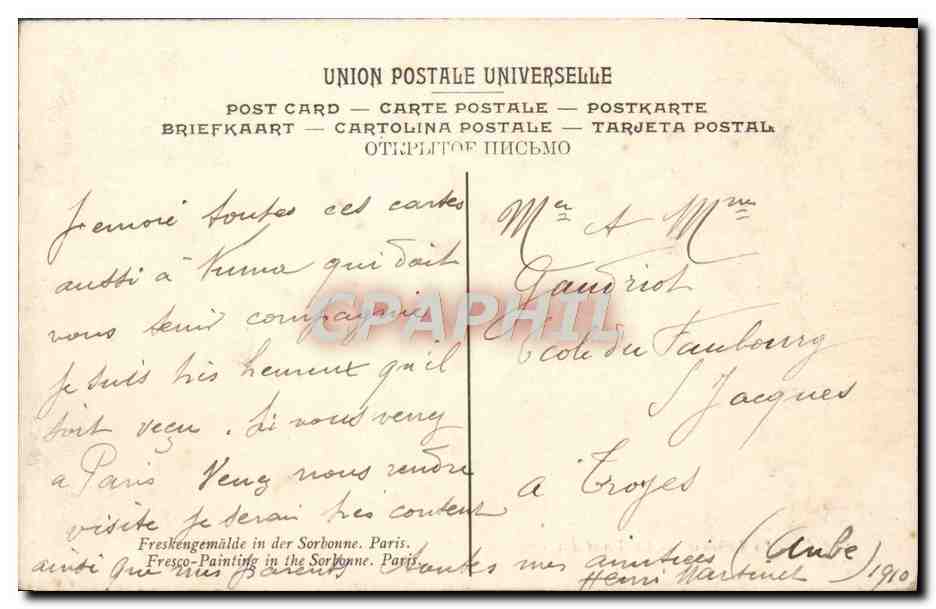 UNION POSTALE UNIVERSELLE
POST CARD — CARTE POSTALE — POSTKARTE
BRIEFKAART — CARTOLINA POSTALE — TARJETA POSTAL
ОТКРЫТОЕ ПИСЬМО
J'envoie toutes ces cartes
aussi à Numa qui doit
vous tenir compagnie
Je suis très heureux qu'il
soit reçu. Si vous venez
a Paris Venez nous rendre
visite je serais très content
ainsi que mes parents toutes mes amitiés
Henri Martinet 1910
Mr et Mme
Gaudriot
Ecole du Faubourg
St Jacques
a Troyes
(Aube)
Freskengemälde in der Sorbonne. Paris.
Fresco-Painting in the Sorbonne. Paris.
CPAPHIL